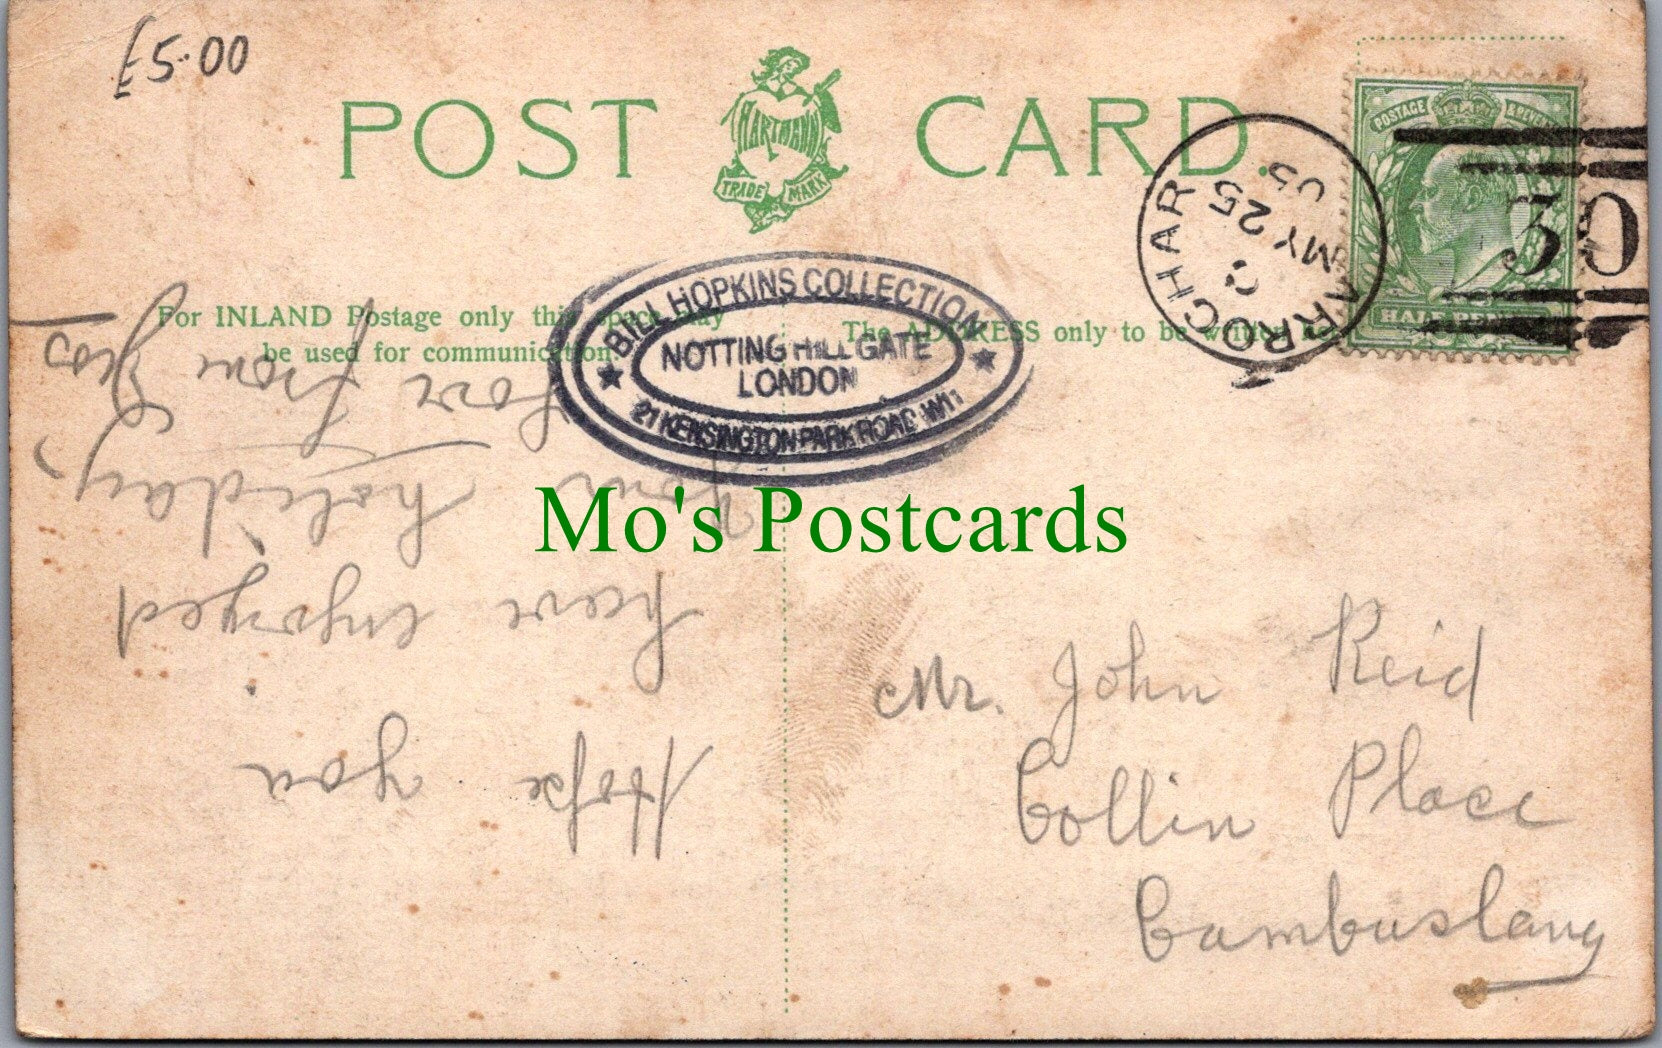 £5.00
POST CARD.
HARTMANN
TRADE MARK
POSTAGE
HALF PENNY
ARROCHAR
MY 25
05
30
For INLAND Postage only this space may
be used for communication.
The ADDRESS only to be written
BILL HOPKINS COLLECTION
NOTTING HILL GATE
LONDON
21 KENSINGTON PARK ROAD W11
Mo's Postcards
Hope you
have enjoyed
your holiday,
Love from
Mr. John Reid
Collin Place
Cambuslang